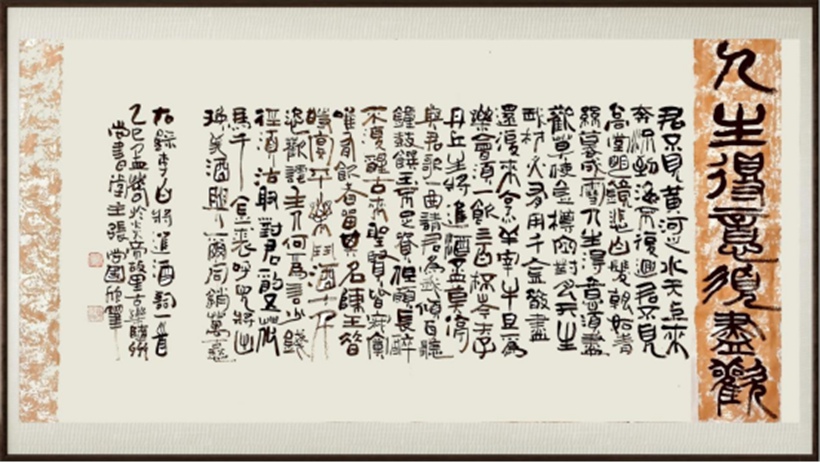 人生得意須盡歡
君不見黃河之水天上來
奔流到海不復迴君不見
高堂明鏡悲白髮朝如青
絲暮成雪人生得意須盡
歡莫使金樽空對月天生
我材必有用千金散盡
還復來烹羊宰牛且為
樂會須一飲三百杯岑夫子
丹丘生將進酒杯莫停
與君歌一曲請君為我傾耳聽
鐘鼓饌玉不足貴但願長醉
不復醒古來聖賢皆寂寞
唯有飲者留其名陳王昔
時宴平樂斗酒十千
恣歡謔主人何為言少錢
徑酒沽取對君酌五花
馬千金裘呼兒將出
換美酒與爾同銷萬古愁
右錄李白將進酒詞一首
乙巳孟春於炎帝故里古
尚書堂主張尚國欣筆